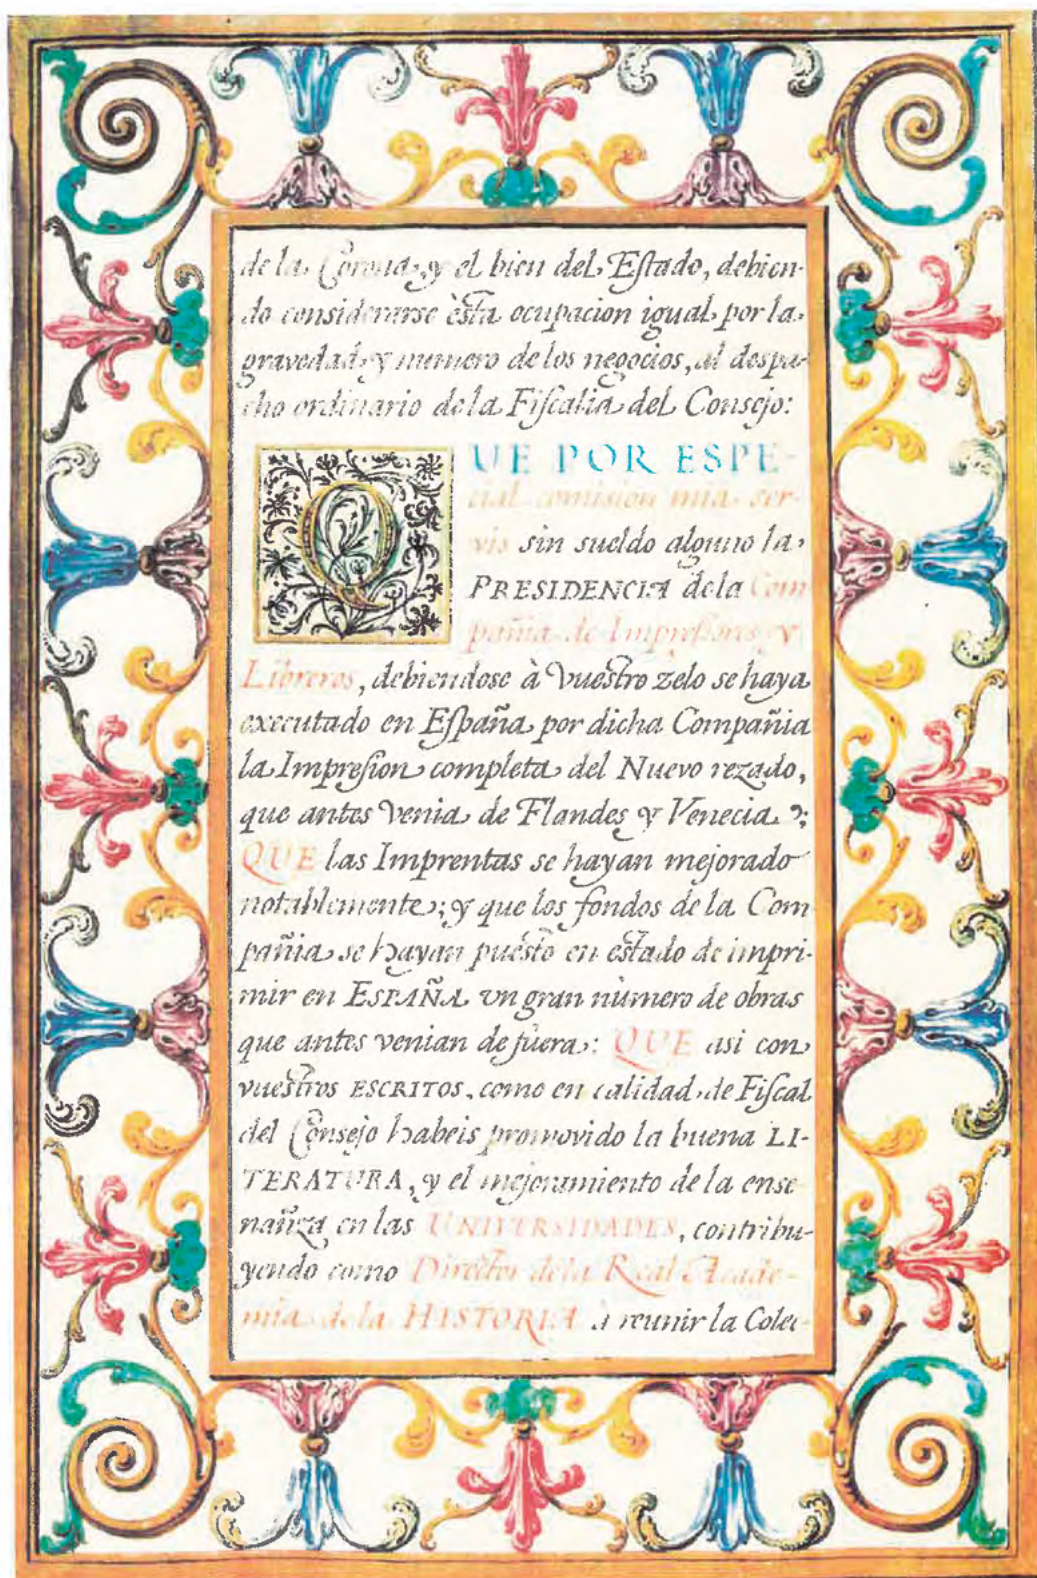 de la Corona, y el bien del Eſtado, debien-
do considerarse èsta ocupacion igual por la
gravedad, y numero de los negocios, al despa-
cho ordinario de la Fiſcalia del Consejo:
QUE POR ESPE-
cial comision mia ser-
vis sin sueldo alguno la
PRESIDENCIA de la Com
pañia de Impreſsores y
Libreros, debiendose à vuestro zelo se haya
executado en Eſpaña por dicha Compañia
la Impreſion completa del Nuevo rezado,
que antes venia de Flandes y Venecia:
QUE las Imprentas se hayan mejorado
notablemente; y que los fondos de la Com
pañia se hayan puesto en estado de impri-
mir en ESPAÑA un gran nùmero de obras
que antes venian de fuera: QUE asi con
vuestros ESCRITOS, como en calidad de Fiſcal
del Consejo habeis promovido la buena LI-
TERATURA, y el mejoramiento de la ense
ñanza en las UNIVERSIDADES, contribu-
yendo como Director de la Real Acade-
mia de la HISTORIA à reunir la Colec-